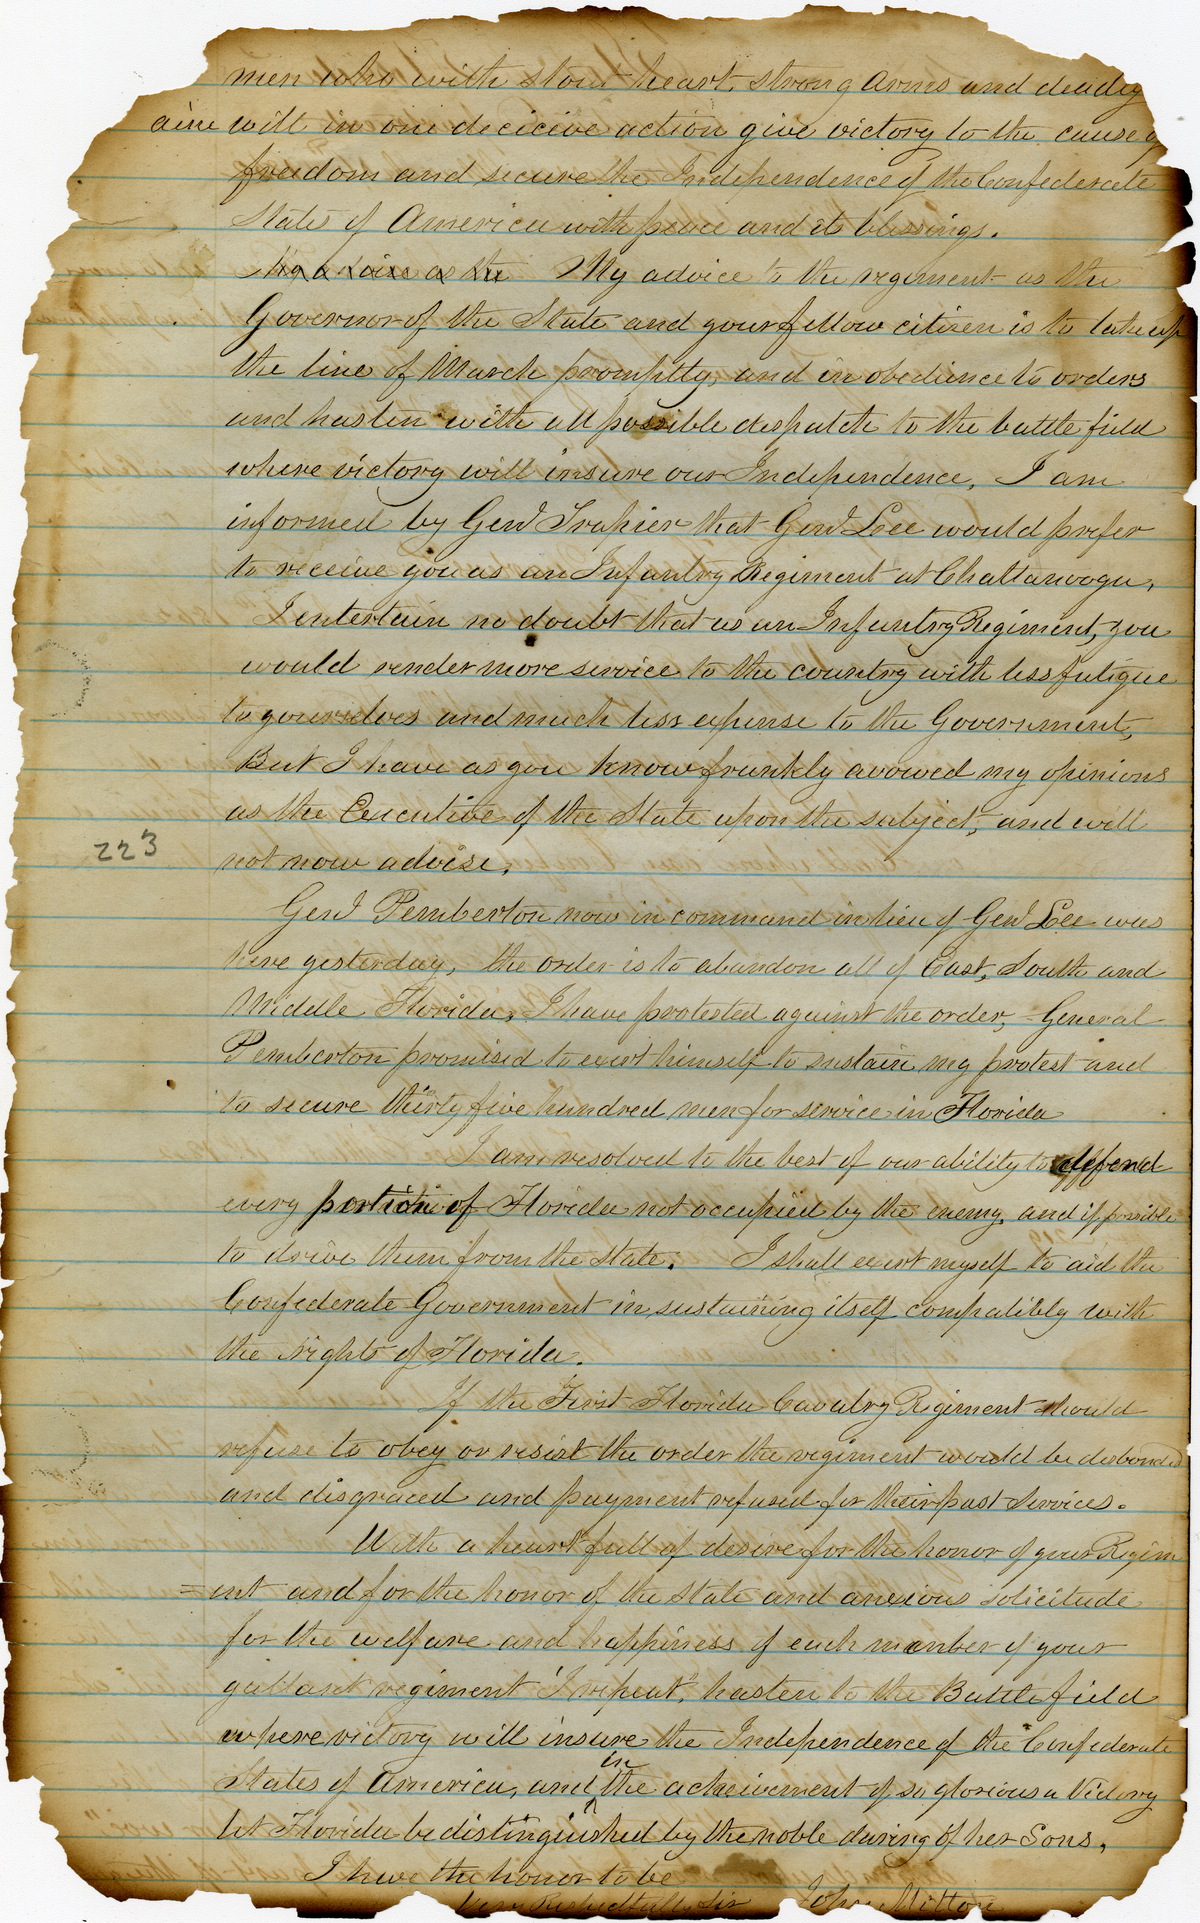 men who with stout heart, strong arms and deadly
aim will in one decicive action give victory to the cause of
freedom and secure the Independence of the Confederate
States of America with peace and its blessings.
My advice to the regiment as the
Governor of the State and your fellow citizen is to take up
the line of March promptly, and in obedience to orders
and hasten with all possible despatch to the battle field
where victory will insure our Independence, I am
informed by Genl Trapier that Genl Lee would prefer
to receive you as an Infantry Regiment at Chattanooga,
I entertain no doubt that as an Infantry Regiment, you
would render more service to the country with less fatigue
to yourselves and much less expense to the Government,
But I have as you know frankly avowed my opinions
as the Executive of the State upon the subject, and will
not now advise.
223
Genl Pemberton now in command in lieu of Genl Lee was
here yesterday, the order is to abandon all of East, South and
Middle Florida, I have protested against the order, General
Pemberton promised to exert himself to sustain my protest and
to secure thirty five hundred men for service in Florida
I am resolved to the best of our ability to deffend
every portion of Florida not occupied by the enemy, and if possible
to drive them from the State. I shall exert myself to aid the
Confederate Government in sustaining itself compatibly with
the rights of Florida.
If the First Florida Cavalry Regiment should
refuse to obey or resist the order the regiment would be disbanded
and disgraced and payment refused for their past services.
With a heart full of desire for the honor of your Regim
=ent and for the honor of the State and anxious solicitude
for the welfare and happiness of each member of your
gallant regiment "I repeat", hasten to the Battle field
where victory will insure the Independence of the Confederate
States of America, and in the acheivement of so glorious a Victory
let Florida be distinguished by the noble daring of her Sons,
I have the honor to be
Very Respectfully Sir John Milton